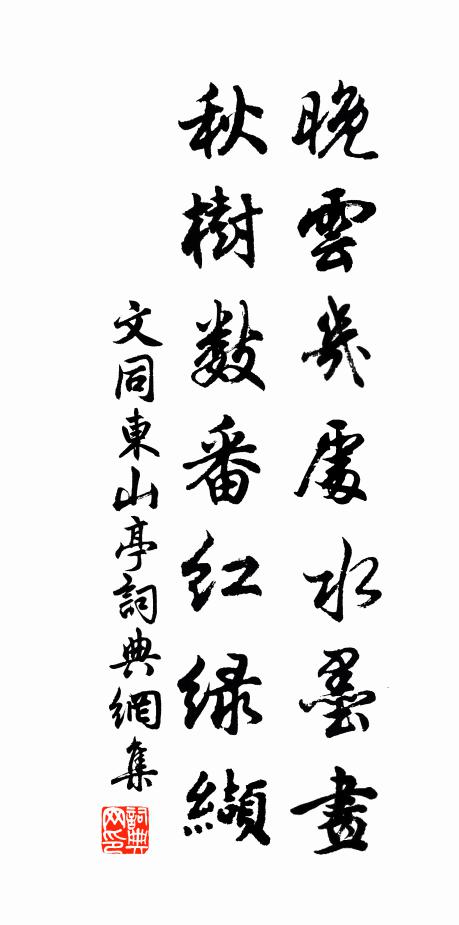 晚雲幾處水墨畫
秋樹數番紅緑纈
文同東山亭詞典網集
詞典网印